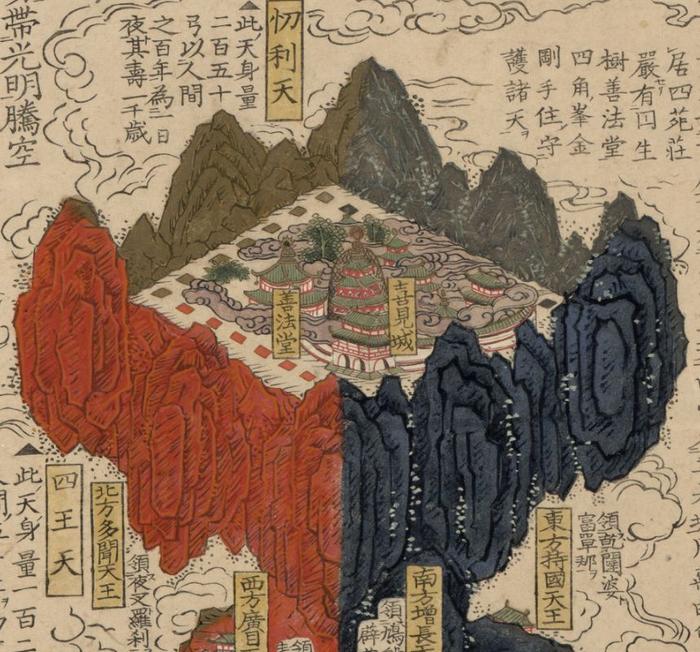 居四苑莊
嚴有円生
樹善法堂
四角峯金
剛手住守
護諸天ヲ
忉利天
▲此天身量
二百五十
弓以人間
之百年為一日
夜其壽一千歳
帶光明騰空
喜見城
善法堂
領乾闥婆
富單那ヲ
東方持國天王
南方增長天
領鳩
西方廣目
領
北方多聞天王
領夜叉羅刹
四王天
▲此天身量一百二